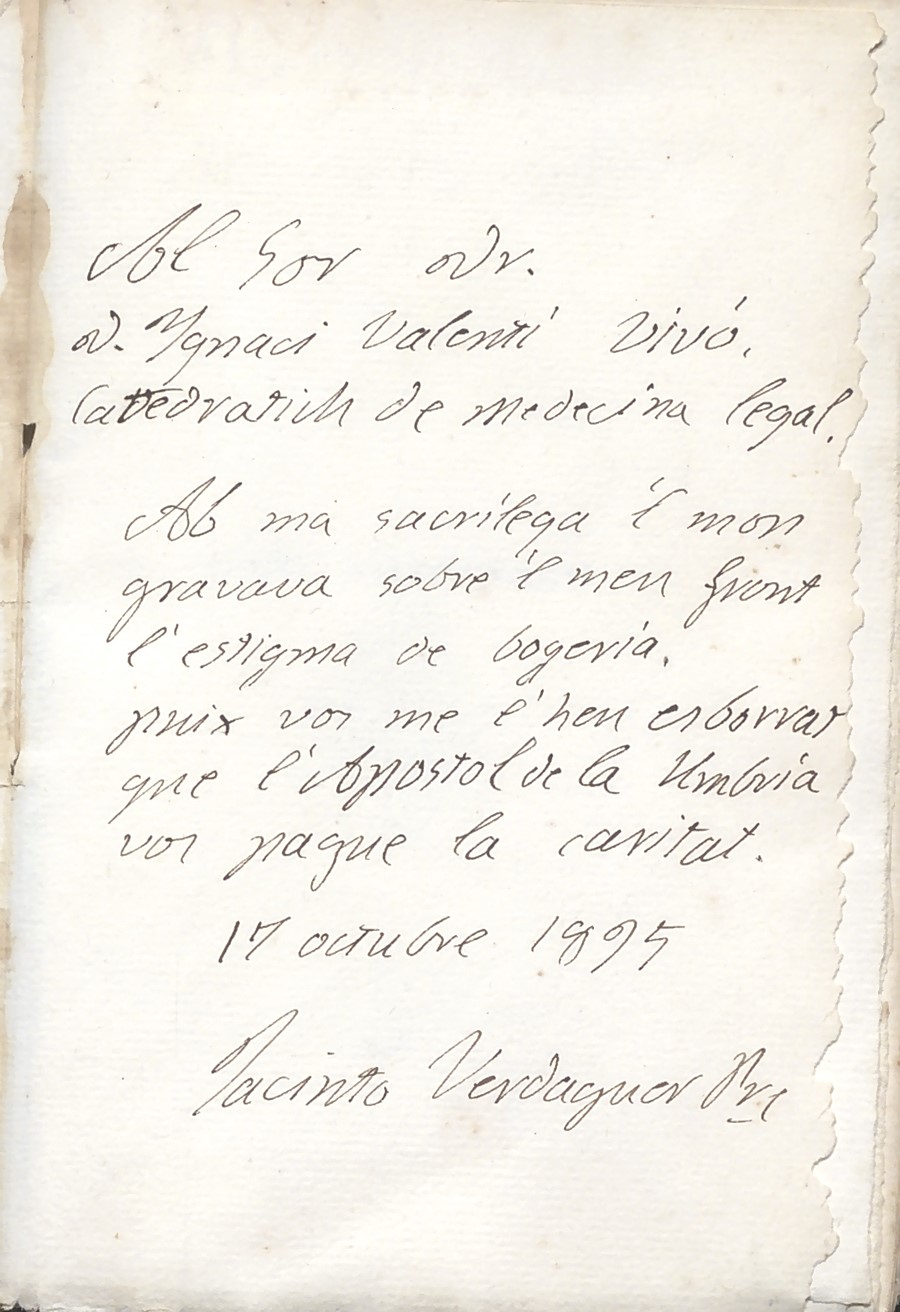 Al Sor Dr.
D. Ygnaci Valentí Vivó,
Catedratich de medecina legal.
Ab mà sacrílega 'l mon
gravava sobre 'l meu front
l'estigma de bogeria.
puix vos me l'heu esborrat
que l'Apostol de la Umbria
vos pague la caritat.
17 octubre 1895
Jacinto Verdaguer Pre